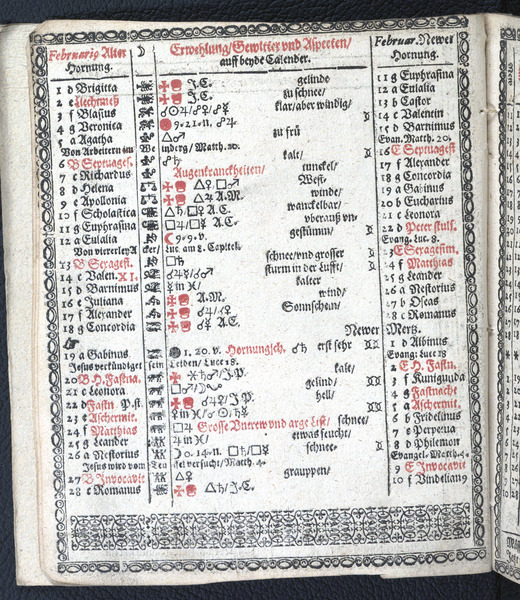 Februariꝰ Alter ☽ Erwehlung/Gewitter vnd Aspecten/ Februar. Newer
Hornung. auff beyde Calender. Hornung.
1 d Brigitta J.C. gelinde 11 g Euphrasina
2 e Liechtmeß J.C. zu schnee/ 12 a Eulalia
3 f Blasius klar/aber windig/ 13 b Castor
4 g Veronica 9.21.n. 14 c Valentin
5 a Agatha △♂ zu frü 15 d Barnimus
Von Arbeitern im Weinberg/Matth. 20. Evan. Matth. 20.
6 B Septuages. ☍♄ kalt/ 16 E Septuagesi
7 c Richardus Augenkranckheiten/ tunckel/ 17 f Alexander
8 d Helena △♀ □♂ West- 18 g Concordia
9 e Apollonia △♃ A.M. winde/ 19 a Gabinus
10 f Scholastica △♄ □♀ A.C. wanckelbar/ 20 b Eucharius
11 g Euphrasina □♃/□☿ A.C. überauß vn- 21 c Leonora
12 a Eulalia ☾ 9.9.v. gestümm/ 22 d Peter stulf.
Von viererley Acker/Luc am 8. Capitel. Evang. Luc. 8.
13 B Sexagesi. □♄ schnee/vnd grosser 23 E Sexagesim.
14 c Valen. XI. sturm in der Lufft/ 24 f Matthias
15 d Barnimus ☿ in ♓/ kalter 25 g Leander
16 e Juliana A.M. wind/ 26 a Nestorius
17 f Alexander Sonnschein/ 27 b Oseas
18 g Concordia A.C. 28 c Romanus
Newer Mertz.
19 a Gabinus 1.20.v. Hornungsch. ☌♄ erst sehr 1 d Albinus
Jesus verkündiget sein Leiden/Luc 18. Evang: Luc 18
20 B H. Fastna. J.P. kalt/ 2 E H. Fastn.
21 c Leonora gelind/ 3 f Kunigunda
22 d Fastn P.st. J.P. hell/ 4 g Fastnacht
23 e Aschermit. ♀ in ♓/ 5 a Aschermit.
24 f Matthias □♃ Grosse Vntrew vnd arge List/ schnee/ 6 b Fridelinus
25 g Leander ♃ in ♓/ etwas feucht/ 7 c Perpetua
26 a Nestorius 0.14.n. □♄/□☿ schnee/ 8 d Philemon
Jesus wird vom Teuffel versucht/Matth. 4. Evangel. Matth. 4.
27 B Invocavit △♀ graupen/ 9 E Invocavit
28 c Romanus △♄/J.C. 10 f Vindelianꝰ